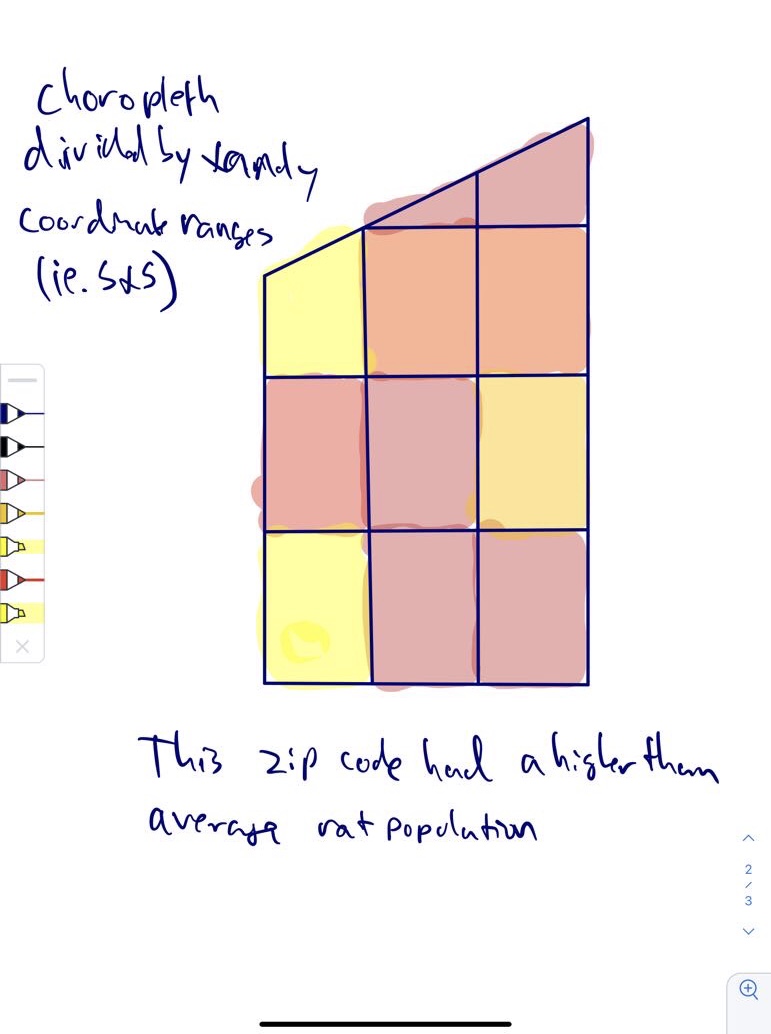 Choropleth
divided by x and y
coordinate ranges
(ie. 5x5)
This zip code had a higher than
average rat population
2
/
3